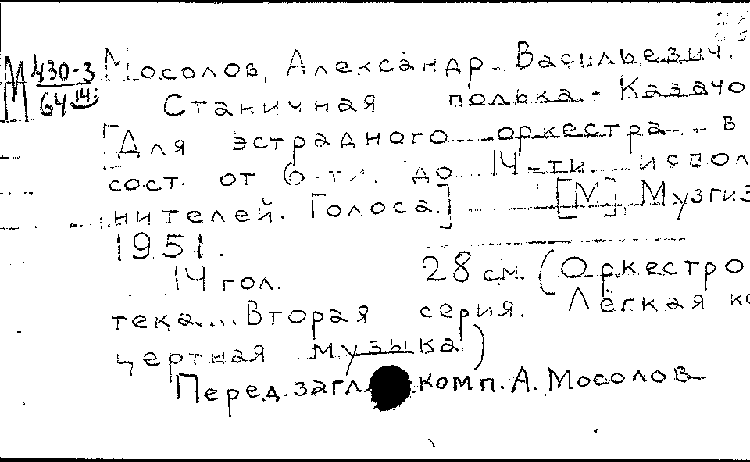 М 430-3
64 14
Мосолов, Александр Васильевич.
Станичная полька-Казачо
[Для эстрадного оркестра в
сост. от 6-ти до 14-ти испол
нителей. Голоса.] [М], Музгиз
1951.
14 гол. 28 см. (Оркестро
тека... Вторая серия. Лёгкая ко
цертная музыка)
Перед загл. комп. А. Мосолов